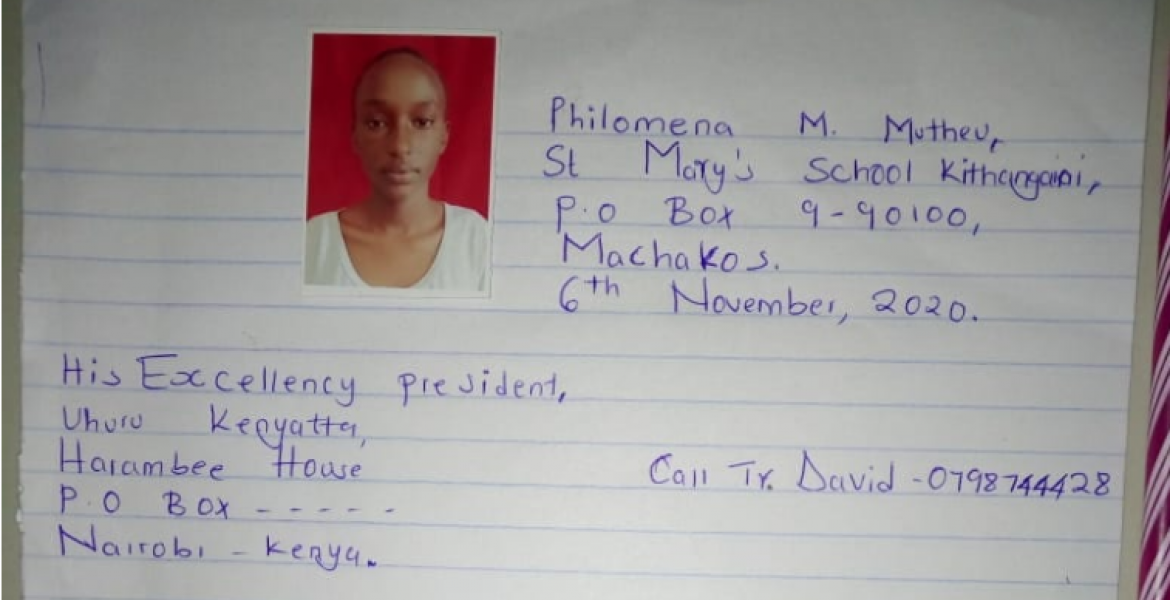 Philomena M. Mutheu,
St Mary's School Kithangaini,
P.O Box 9-90100,
Machakos.
6th November, 2020.
His Excellency president,
Uhuru Kenyatta,
Harambee House
P.O BOX - - - - -
Nairobi - Kenya.
Call Tr. David - 0798744428